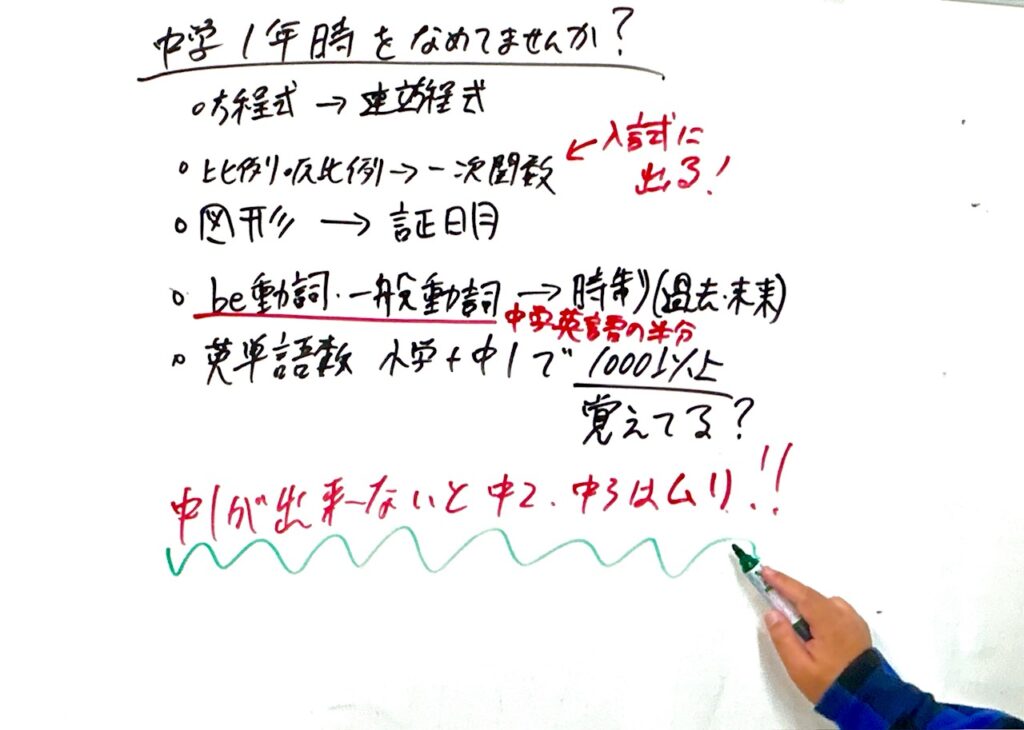 中学1年時をなめてませんか?
○方程式→連立方程式
○比例・反比例→一次関数
←入試に
出る!
○図形→証明
○be動詞・一般動詞→時制(過去・未来)
中学英単語の半分
○英単語数 小学+中1で1000以上
覚えてる?
中1が出来ないと中2、中3はムリ!!